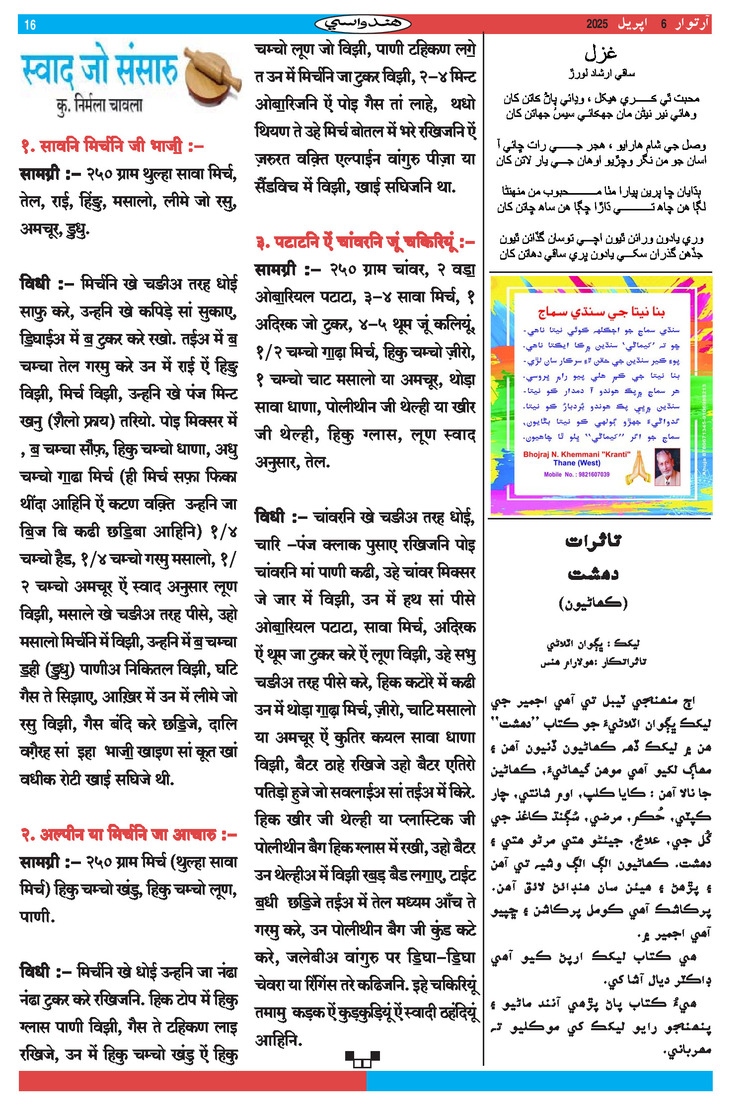 16
هندواسي
آرتوار 6 اپريل 2025
स्वाद जो संसारु
कु. निर्मला चावला
१. सावनि मिर्चनि जी भाॼी :–
सामग्री :– २५० ग्राम थुल्हा सावा मिर्च,
तेल, राई, हिंङु, मसालो, लीमे जो रसु,
अमचूर, ॾुधु.
विधी :– मिर्चनि खे चङीअ तरह धोई
साफु करे, उन्हनि खे कपिड़े सां सुकाए,
ॾिघाईअ में ॿ टुकर करे रखो. तईअ में ॿ
चम्चा तेल गरमु करे उन में राई ऐं हिङु
विझी, मिर्च विझी, उन्हनि खे पंज मिन्ट
खनु (शैलो फ्राय) तरियो. पोइ मिक्सर में
, ॿ चम्चा सौंफ़, हिकु चम्चो धाणा, अधु
चम्चो ॻाढा मिर्च (ही मिर्च सफ़ा फिका
थींदा आहिनि ऐं कटण वक़्ति उन्हनि जा
ॿिज बि कढी छॾिबा आहिनि) १/४
चम्चो हैड, १/४ चम्चो गरमु मसालो, १/
२ चम्चो अमचूर ऐं स्वाद अनुसार लूण
विझी, मसाले खे चङीअ तरह पीसे, उहो
मसालो मिर्चनि में विझी, उन्हनि में ॿ चम्चा
ॾही (ॾुधु) पाणीअ निकितल विझी, घटि
गैस ते सिझाए, आख़िर में उन में लीमे जो
रसु विझी, गैस बंदि करे छॾिजे, दालि
वग़ैरह सां इहा भाॼी खाइण सां कूत खां
वधीक रोटी खाई सघिजे थी.
२. अल्पीन या मिर्चनि जा आचारु :–
सामग्री :– २५० ग्राम मिर्च (थुल्हा सावा
मिर्च) हिकु चम्चो खंडु, हिकु चम्चो लूण,
पाणी.
विधी :– मिर्चनि खे धोई उन्हनि जा नंढा
नंढा टुकर करे रखिजनि. हिक टोप में हिकु
ग्लास पाणी विझी, गैस ते टहिकण लाइ
रखिजे, उन में हिकु चम्चो खंडु ऐं हिकु
चम्चो लूण जो विझी, पाणी टहिकण लॻे
त उन में मिर्चनि जा टुकर विझी, २–४ मिन्ट
ओॿारिजनि ऐं पोइ गैस तां लाहे, थधो
थियण ते उहे मिर्च बोतल में भरे रखिजनि ऐं
ज़रुरत वक़्ति एल्पाईन वांगुरु पीज़ा या
सैंडविच में विझी, खाई सघिजनि था.
३. पटाटनि ऐं चांवरनि जूं चकिरियूं :–
सामग्री :– २५० ग्राम चांवर, २ वॾा
ओॿारियल पटाटा, ३–४ सावा मिर्च, १
अदिरक जो टुकर, ४–५ थूम जूं कलियूं,
१/२ चम्चो ॻाढ़ा मिर्च, हिकु चम्चो ज़ीरो,
१ चम्चो चाट मसालो या अमचूर, थोड़ा
सावा धाणा, पोलीथीन जी थेल्ही या खीर
जी थेल्ही, हिकु ग्लास, लूण स्वाद
अनुसार, तेल.
विधी :– चांवरनि खे चङीअ तरह धोई,
चारि –पंज क्लाक पुसाए रखिजनि पोइ
चांवरनि मां पाणी कढी, उहे चांवर मिक्सर
जे जार में विझी, उन में हथ सां पीसे
ओॿारियल पटाटा, सावा मिर्च, अदिरक
ऐं थूम जा टुकर करे ऐं लूण विझी, उहे सभु
चङीअ तरह पीसे करे, हिक कटोरे में कढी
उन में थोड़ा ॻाढ़ा मिर्च, ज़ीरो, चाटि मसालो
या अमचूर ऐं कुतिर कयल सावा धाणा
विझी, बैटर ठाहे रखिजे उहो बैटर एतिरो
पतिड़ो हुजे जो सवलाईअ सां तईअ में किरे.
हिक खीर जी थेल्ही या प्लास्टिक जी
पोलीथीन बैग हिक ग्लास में रखी, उहो बैटर
उन थेल्हीअ में विझी रबड़ बैंड लगाए, टाईट
ॿधी छॾिजे तईअ में तेल मध्यम आँच ते
गरमु करे, उन पोलीथीन बैग जी कुंड कटे
करे, जलेबीअ वांगुरु पर ॾिघा–ॾिघा
चेवरा या रिंगिंस तरे कढिजनि. इहे चकिरियूं
तमामु कड़क ऐं कुड़कुड़ियूं ऐं स्वादी ठहंदियूं
आहिनि.
غزل
ساقي ارشاد لورڙ
محبت ئي ڪري هيڪل ، وڍائي پاڻ ڪاتن کان
وهائي نير نيڻن مان جهڪائي سيس جهاتن کان
وصل جي شام هارايو ، هجر جي رات ڄاڻي آ
اسان جو من نگر وڇڙيو اوهان جي يار لاتن کان
ٻڌايان ڇا پرين پيارا مٺا محبوب من منهنٺا
لڳا هن چاهه تي ڌاڙا چڱا هن ساهه چاتن کان
وري يادون ورائن ٿيون اچي توسان گڏائن ٿيون
جڏهن گذران سکي يادون پري ساقي ڌهاتن کان
بنا نيتا جي سنڌي سماج
سنڌي سماج جو اڄڪلهه ڪوئي نيتا ناهي.
ڇو تہ "کيماڻي" سنڌين ۾ڪا ايڪتا ناهي.
پوءِ ڪير سنڌين جي حقن لاءِ سرڪار سان لڙي.
بنا نيتا جي ڪم هلي پيو رام ڀروسي.
هر سماج ۾هڪ هوندو آ دمدار ڪو نيتا.
سنڌين ۾ڀي هڪ هوندو بُردباز ڪو نيتا.
گڏوالڻيءَ جهڙو ڳولهي ڪو نيتا بڻايون.
سماج جو اگر "کيماڻي" ڀلو ٿا چاهيون.
Bhojraj N. Khemmani "Kranti"
Thane (West)
Mobile No. : 9821607039
تاثرات
دهشت
(ڪهاڻيون)
ليکڪ : ڀڳوان اٽلاڻي
تاثراتڪار :هولارام هنس
اڄ منهنجي ٽيبل تي آهي اجمير جي
ليکڪ ڀڳوان اٽلاڻيءَ جو ڪتاب "دهشت"
هن ۾ ليکڪ ڏهه ڪهاڻيون ڏنيون آهن ۽
مهاڳ لکيو آهي موهن گيهاڻيءَ، ڪهاڻين
جا نالا آهن : ڪايا ڪلپ، اوم شانتي، چار
ڪپٽي، حُڪم، مرضي، سُڳنڌ ڪاغذ جي
گُل جي، علاج، جيئڻو هتي مرڻو هتي ۽
دهشت. ڪهاڻيون الڳ الڳ وشيه تي آهن
۽ پڙهڻ ۽ هيئن سان هنڊائڻ لائق آهن.
پرڪاشڪ آهي ڪومل پرڪاشن ۽ ڇپيو
آهي اجمير ۾.
هي ڪتاب ليکڪ ارپڻ ڪيو آهي
ڊاڪٽر ديال آشا کي.
هيءُ ڪتاب پاڻ پڙهي آنند ماڻيو ۽
پنهنجو رايو ليکڪ کي موڪليو تہ
مهرباني.